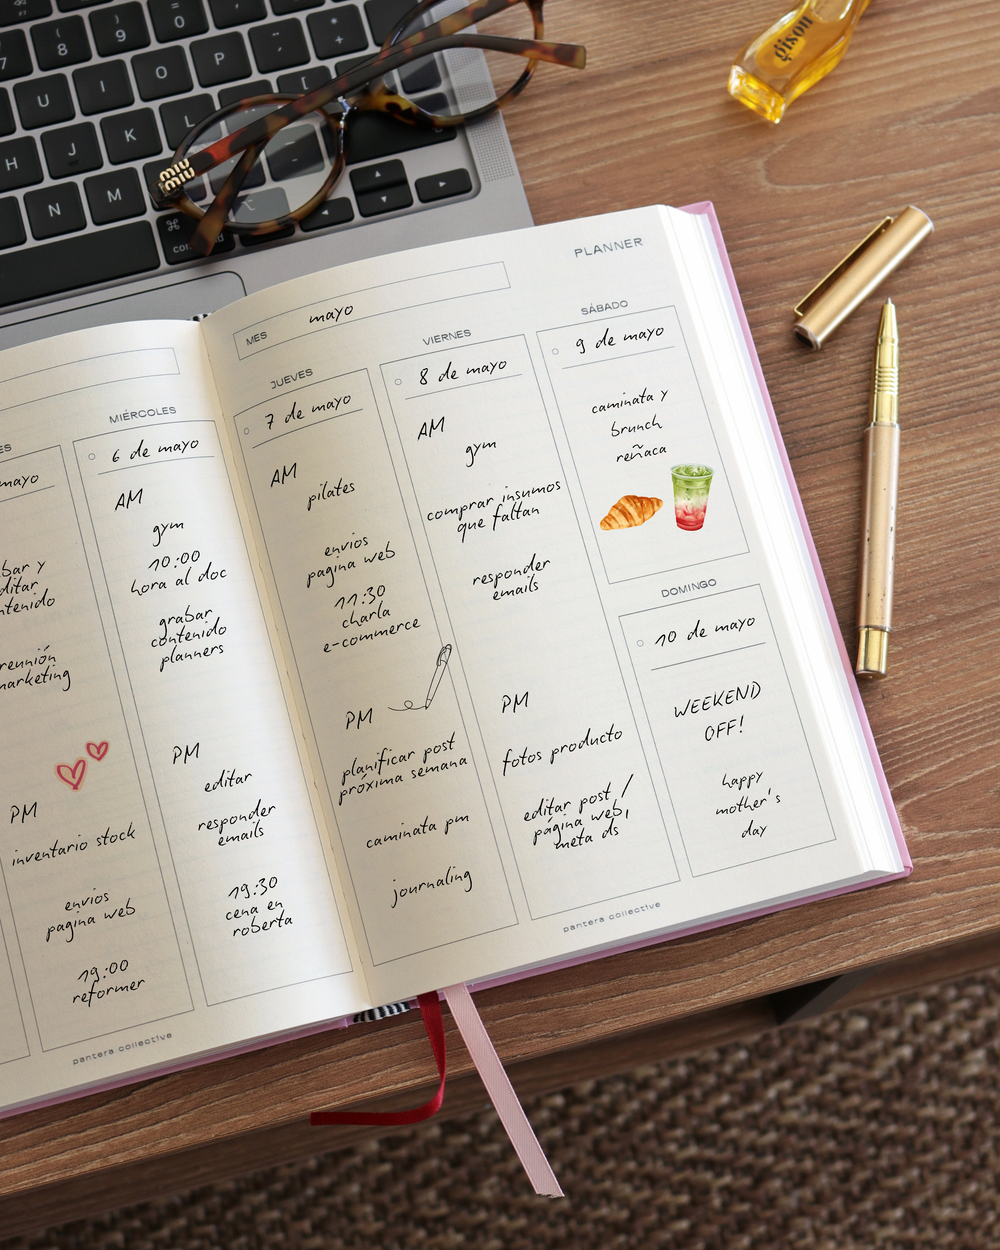 7 8 9 0 - +
U I O P [
H J K L
N M
⌘
miu
miu
gisou
PLANNER
MES mayo
MIÉRCOLES
6 de mayo
AM
gym
10:00
hora al doc
grabar
contenido
planners
PM
editar
responder
emails
19:30
cena en
roberta
mayo
bar y
ditar
ntenido
reunión
marketing
PM
inventario stock
envios
pagina web
19:00
reformer
pantera collective
JUEVES
7 de mayo
AM
pilates
envios
pagina web
11:30
charla
e-commerce
PM
planificar post
próxima semana
caminata pm
journaling
VIERNES
8 de mayo
AM
gym
comprar insumos
que faltan
responder
emails
PM
fotos producto
editar post /
página web,
meta ds
SÁBADO
9 de mayo
caminata y
brunch
reñaca
DOMINGO
10 de mayo
WEEKEND
OFF!
happy
mother's
day
pantera collective